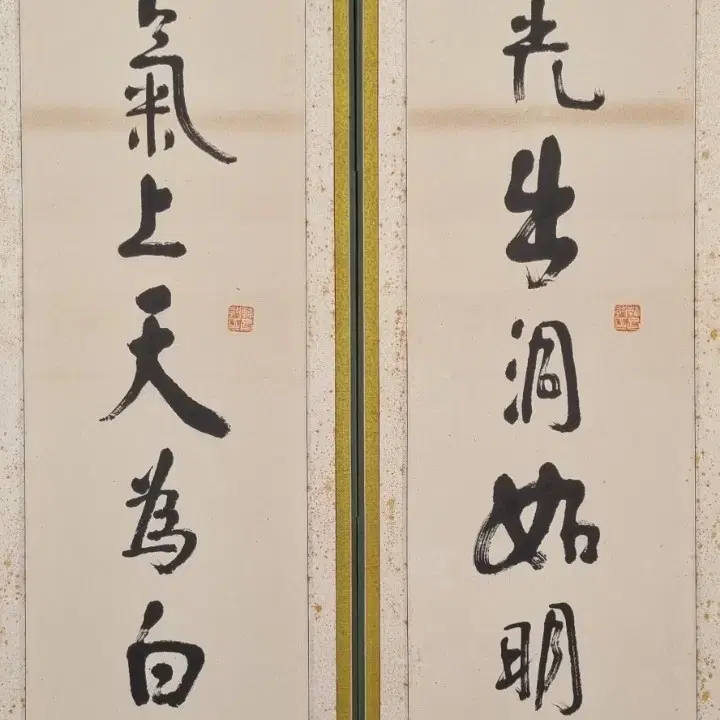 光出洞如明
氣上天為白